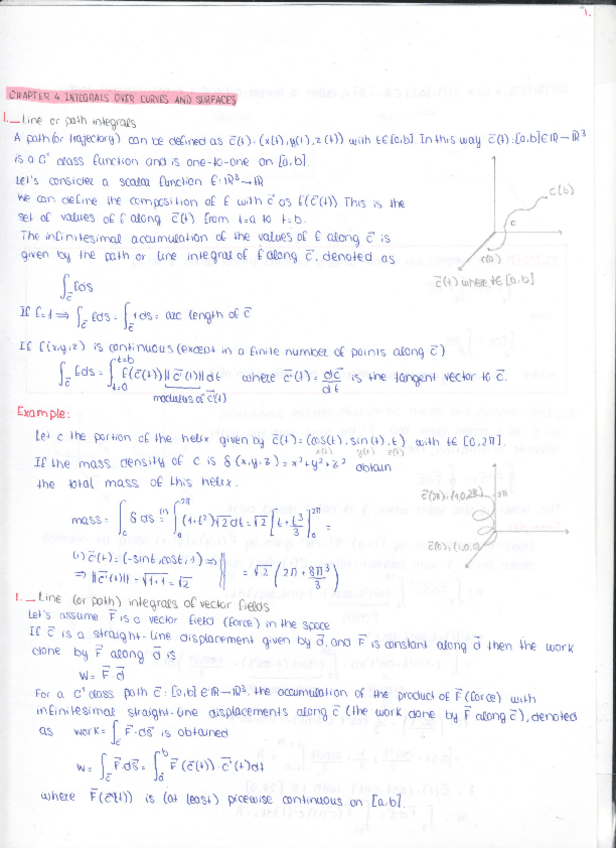 1.
CHAPTER 4 INTEGRALS OVER CURVES AND SURFACES
1._ Line or path integrals
A path (or trajectory) can be defined as c̄(t)=(x(t),y(t),z(t)) with t∈[a,b] In this way c̄(t):[a,b]∈ℝ→ℝ³
is a C' class function and is one-to-one on [a,b].
Let's consider a scalar function f:ℝ³→ℝ
We can define the composition of f with c̄ as f(c̄(t)) This is the
set of values of f along c̄(t) from t=a to t=b.
The infinitesimal accumulation of the values of f along c̄ is
given by the path or line integral of f along c̄, denoted as
c(b)
c
c(a)
c̄(t) where t∈[a,b]
∫c̄ f ds
If f=1 ⟹ ∫c̄ f ds = ∫c̄ 1 ds = arc length of c̄
If f(x,y,z) is continuous (except in a finite number of points along c̄)
∫c̄ f ds = ∫ t=a t=b f(c̄(t)) ||c̄'(t)|| dt where c̄'(t) = dc̄/dt is the tangent vector to c̄.
modulus of c̄'(t)
Example:
Let c the portion of the helix given by c̄(t)=(cos(t),sin(t),t) with t∈[0,2π].
x(t) y(t) z(t)
If the mass density of c is δ(x,y,z)=x²+y²+z² obtain
the total mass of this helix.
c̄(2π)=(1,0,2π)
2π
c̄(0)=(1,0,0)
mass = ∫c δ ds =(1) ∫₀^2π (1+t²)√2 dt = √2 [t + t³/3]₀^2π =
(1) c̄'(t)=(-sint,cost,1) ⟹
⟹ ||c̄'(t)|| = √1+1 = √2
= √2 (2π + 8π³/3)
1._ Line (or path) integrals of vector fields
Let's assume F̄ is a vector field (force) in the space
If c̄ is a straight-line displacement given by d̄, and F̄ is constant along d̄ then the work
done by F̄ along d̄ is
W = F̄·d̄
For a C' class path c̄:[a,b]∈ℝ→ℝ³, the accumulation of the product of F̄ (force) with
infinitesimal straight-line displacements along c̄ (the work done by F̄ along c̄), denoted
as work = ∫c̄ F̄·ds̄ is obtained
W = ∫c̄ F̄·ds̄ = ∫ₐᵇ F̄(c̄(t))·c̄'(t)dt
where F̄(c̄(t)) is (at least) picewise continuous on [a,b].